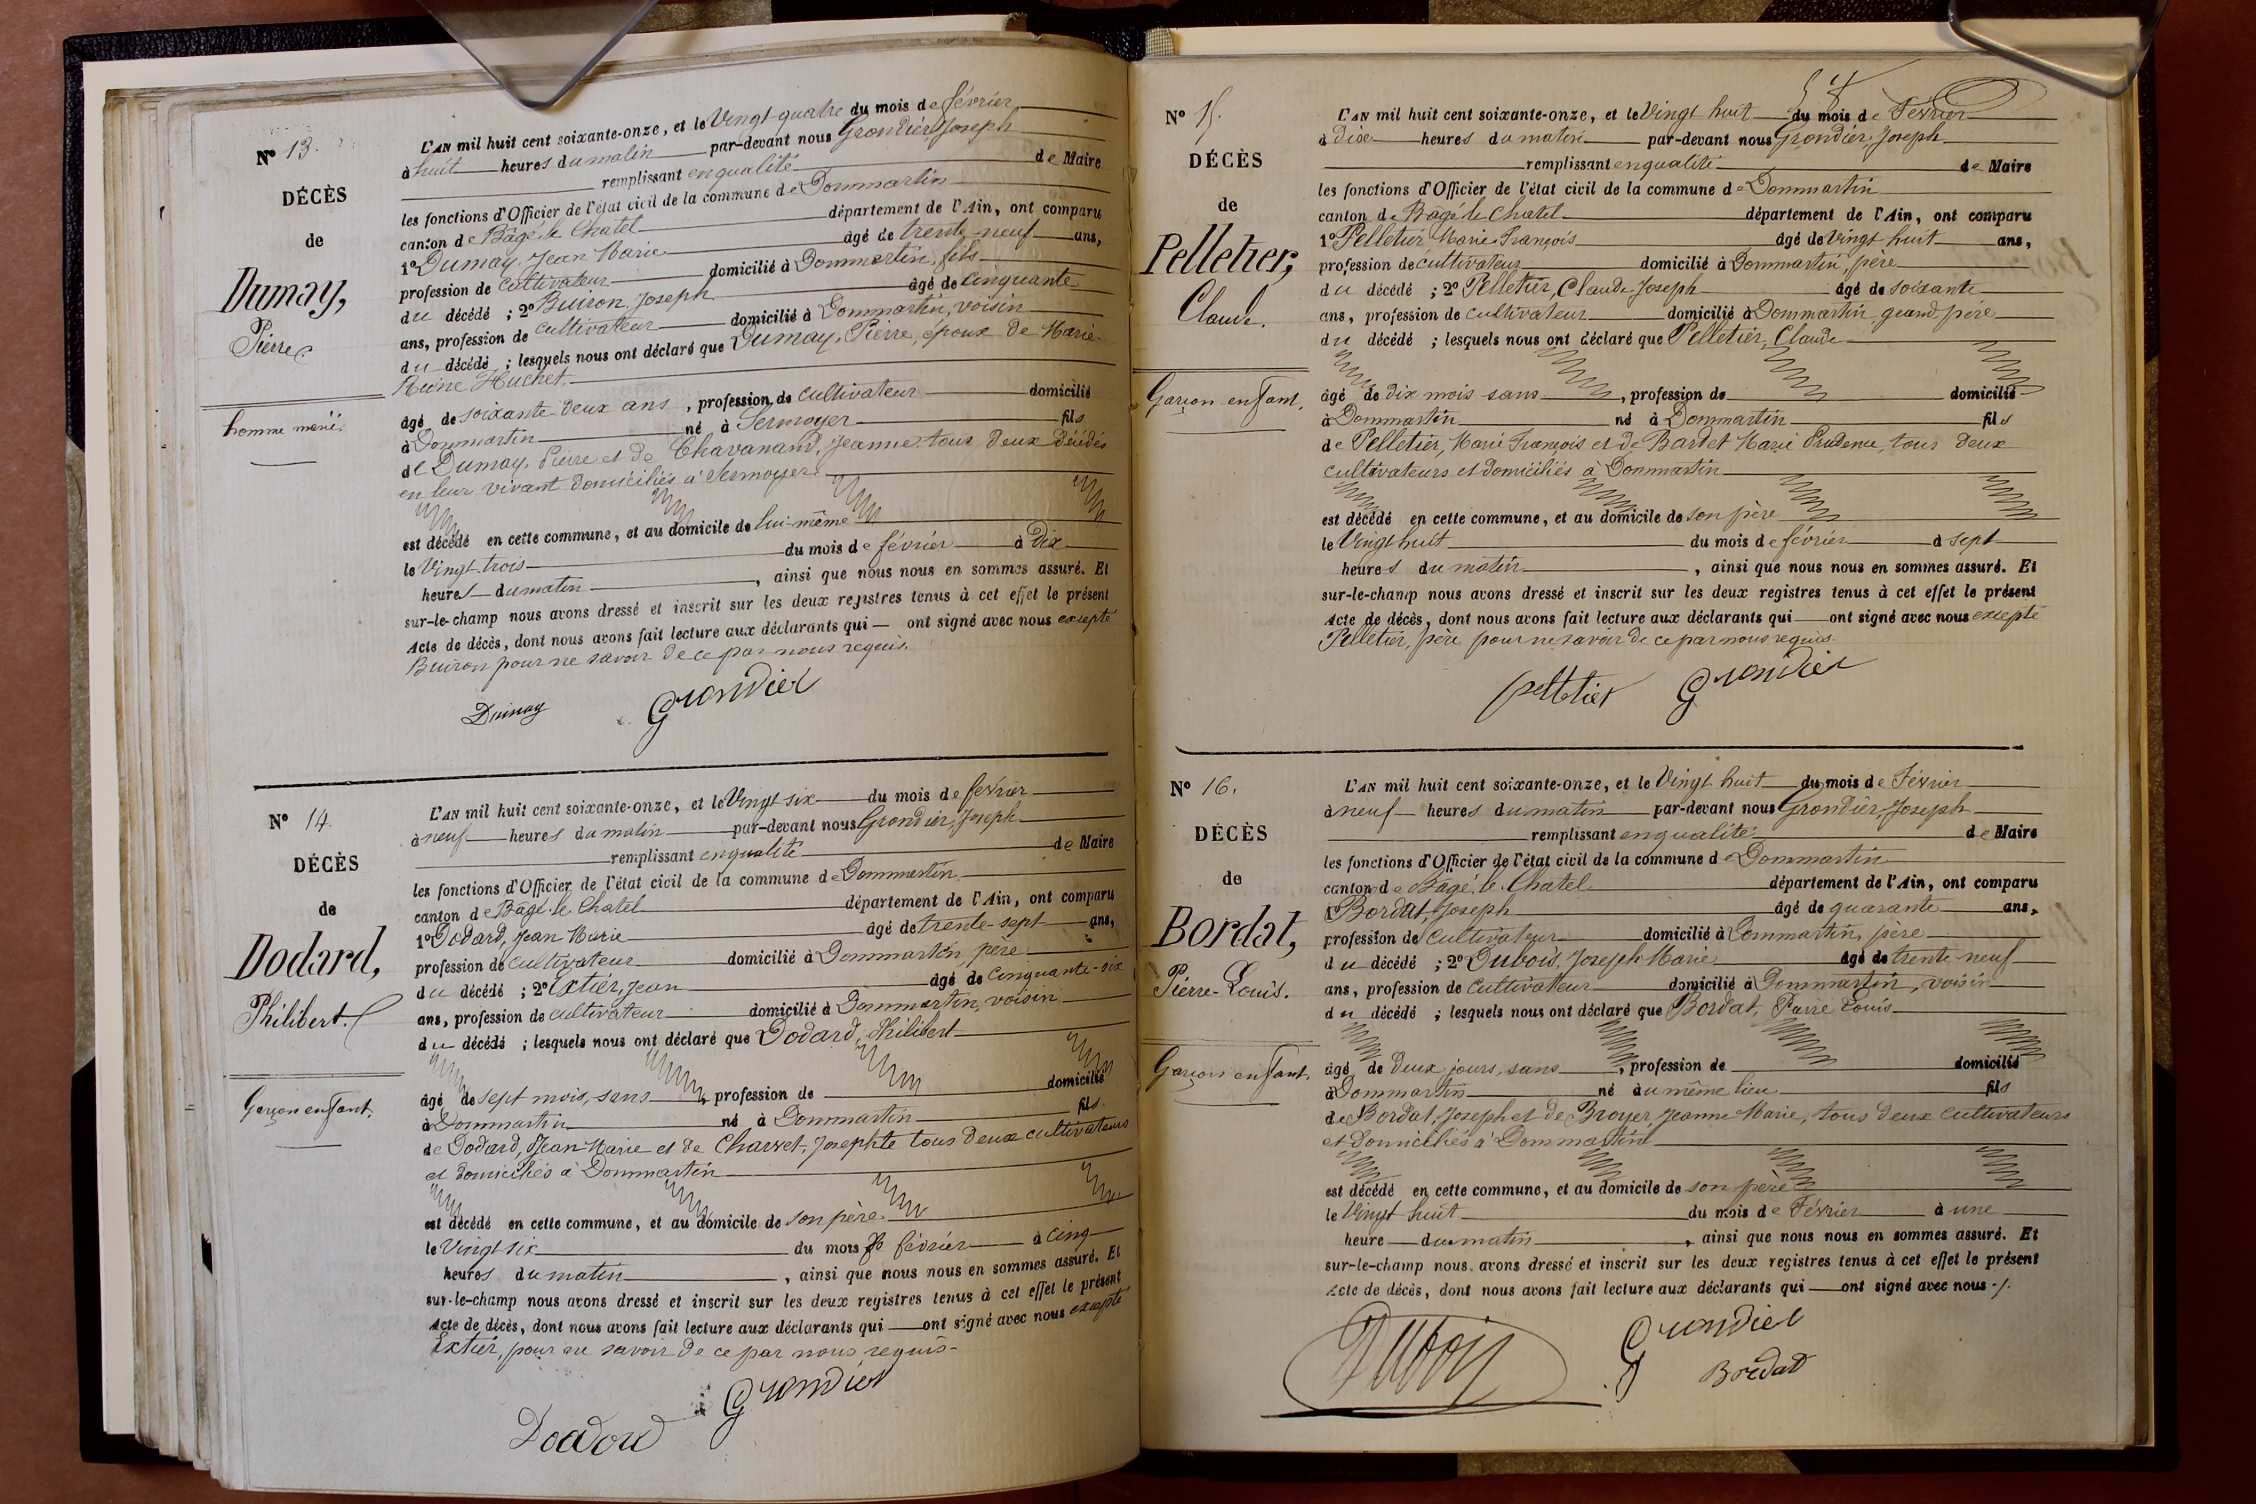 Nº 13.
DÉCÈS
de
Dumay,
Pierre
homme marié.
L'AN mil huit cent soixante-onze, et le Vingt-quatre du mois de février
à huit heures du matin par-devant nous Grondier, Joseph
remplissant en qualité de Maire
les fonctions d'Officier de l'état civil de la commune de Dommartin
canton de Bâgé-le-Chatel département de l'Ain, ont comparu
1º Dumay, Jean Marie âgé de trente-neuf ans,
profession de cultivateur domicilié à Dommartin, fils
du décédé ; 2º Buiron, Joseph âgé de cinquante
ans, profession de cultivateur domicilié à Dommartin, voisin
du décédé ; lesquels nous ont déclaré que Dumay, Pierre, époux de Marie
Reine Huchet.
âgé de soixante-deux ans, profession de cultivateur domicilié
à Dommartin né à Sermoyer fils
de Dumay, Pierre et de Chavanand, Jeanne tous deux décédés
en leur vivant domiciliés à Sermoyer
est décédé en cette commune, et au domicile de lui-même
le Vingt-trois du mois de février à dix
heures du matin, ainsi que nous nous en sommes assuré. Et
sur-le-champ nous avons dressé et inscrit sur les deux registres tenus à cet effet le présent
Acte de décès, dont nous avons fait lecture aux déclarants qui — ont signé avec nous excepté
Buiron pour ne savoir de ce par nous requis.
Dumay Grondier
Nº 14.
DÉCÈS
de
Dodard,
Philibert.
Garçon enfant.
L'AN mil huit cent soixante-onze, et le Vingt six du mois de février
à neuf heures du matin par-devant nous Grondier, Joseph
remplissant en qualité de Maire
les fonctions d'Officier de l'état civil de la commune de Dommartin
canton de Bâgé-le-Chatel département de l'Ain, ont comparu
1º Dodard, Jean Marie âgé de trente-sept ans,
profession de cultivateur domicilié à Dommartin, père
du décédé ; 2º Extier, Jean âgé de Cinquante-six
ans, profession de cultivateur domicilié à Dommartin, voisin
du décédé ; lesquels nous ont déclaré que Dodard, Philibert
âgé de sept mois, sans, profession de domicilié
à Dommartin né à Dommartin fils
de Dodard, Jean Marie et de Charvet, Josephte tous deux cultivateurs
et domiciliés à Dommartin
est décédé en cette commune, et au domicile de son père
le Vingt six du mois de février à cinq
heures du matin, ainsi que nous nous en sommes assuré. Et
sur-le-champ nous avons dressé et inscrit sur les deux registres tenus à cet effet le présent
Acte de décès, dont nous avons fait lecture aux déclarants qui — ont signé avec nous excepté
Extier, pour ne savoir de ce par nous requis
Grondier
Dodard
Nº 15.
DÉCÈS
de
Pelletier,
Claude.
Garçon enfant.
L'AN mil huit cent soixante-onze, et le Vingt huit du mois de Février
à dix heures du matin par-devant nous Grondier, Joseph
remplissant en qualité de Maire
les fonctions d'Officier de l'état civil de la commune de Dommartin
canton de Bâgé-le-Chatel département de l'Ain, ont comparu
1º Pelletier, Marie François âgé de Vingt huit ans,
profession de cultivateur domicilié à Dommartin, père
du décédé ; 2º Pelletier, Claude Joseph âgé de soixante
ans, profession de cultivateur domicilié à Dommartin grand père
du décédé ; lesquels nous ont déclaré que Pelletier, Claude
âgé de dix mois sans, profession de domicilié
à Dommartin né à Dommartin fils
de Pelletier, Marie François et de Bardet Marie Prudence, tous deux
cultivateurs et domiciliés à Dommartin
est décédé en cette commune, et au domicile de son père
le Vingt huit du mois de février à sept
heures du matin, ainsi que nous nous en sommes assuré. Et
sur-le-champ nous avons dressé et inscrit sur les deux registres tenus à cet effet le présent
Acte de décès, dont nous avons fait lecture aux déclarants qui — ont signé avec nous excepté
Pelletier, père pour ne savoir de ce par nous requis.
pelletier Grondier
Nº 16.
DÉCÈS
de
Bordat,
Pierre-Louis.
Garçon enfant.
L'AN mil huit cent soixante-onze, et le Vingt huit du mois de Février
à neuf heures du matin par-devant nous Grondier, Joseph
remplissant en qualité de Maire
les fonctions d'Officier de l'état civil de la commune de Dommartin
canton de Bâgé-le-Chatel département de l'Ain, ont comparu
1º Bordat, Joseph âgé de quarante ans,
profession de cultivateur domicilié à Dommartin, père
du décédé ; 2º Dubois, Joseph Marie âgé de trente-neuf
ans, profession de cultivateur domicilié à Dommartin, voisin
du décédé ; lesquels nous ont déclaré que Bordat, Pierre Louis
âgé de Deux jours, sans, profession de domicilié
à Dommartin né au même lieu fils
de Bordat, Joseph et de Broyer, Jeanne Marie, tous deux cultivateurs
et domiciliés à Dommartin
est décédé en cette commune, et au domicile de son père
le Vingt huit du mois de Février à une
heure du matin, ainsi que nous nous en sommes assuré. Et
sur-le-champ nous avons dressé et inscrit sur les deux registres tenus à cet effet le présent
Acte de décès, dont nous avons fait lecture aux déclarants qui — ont signé avec nous
Dubois Grondier
Bordat